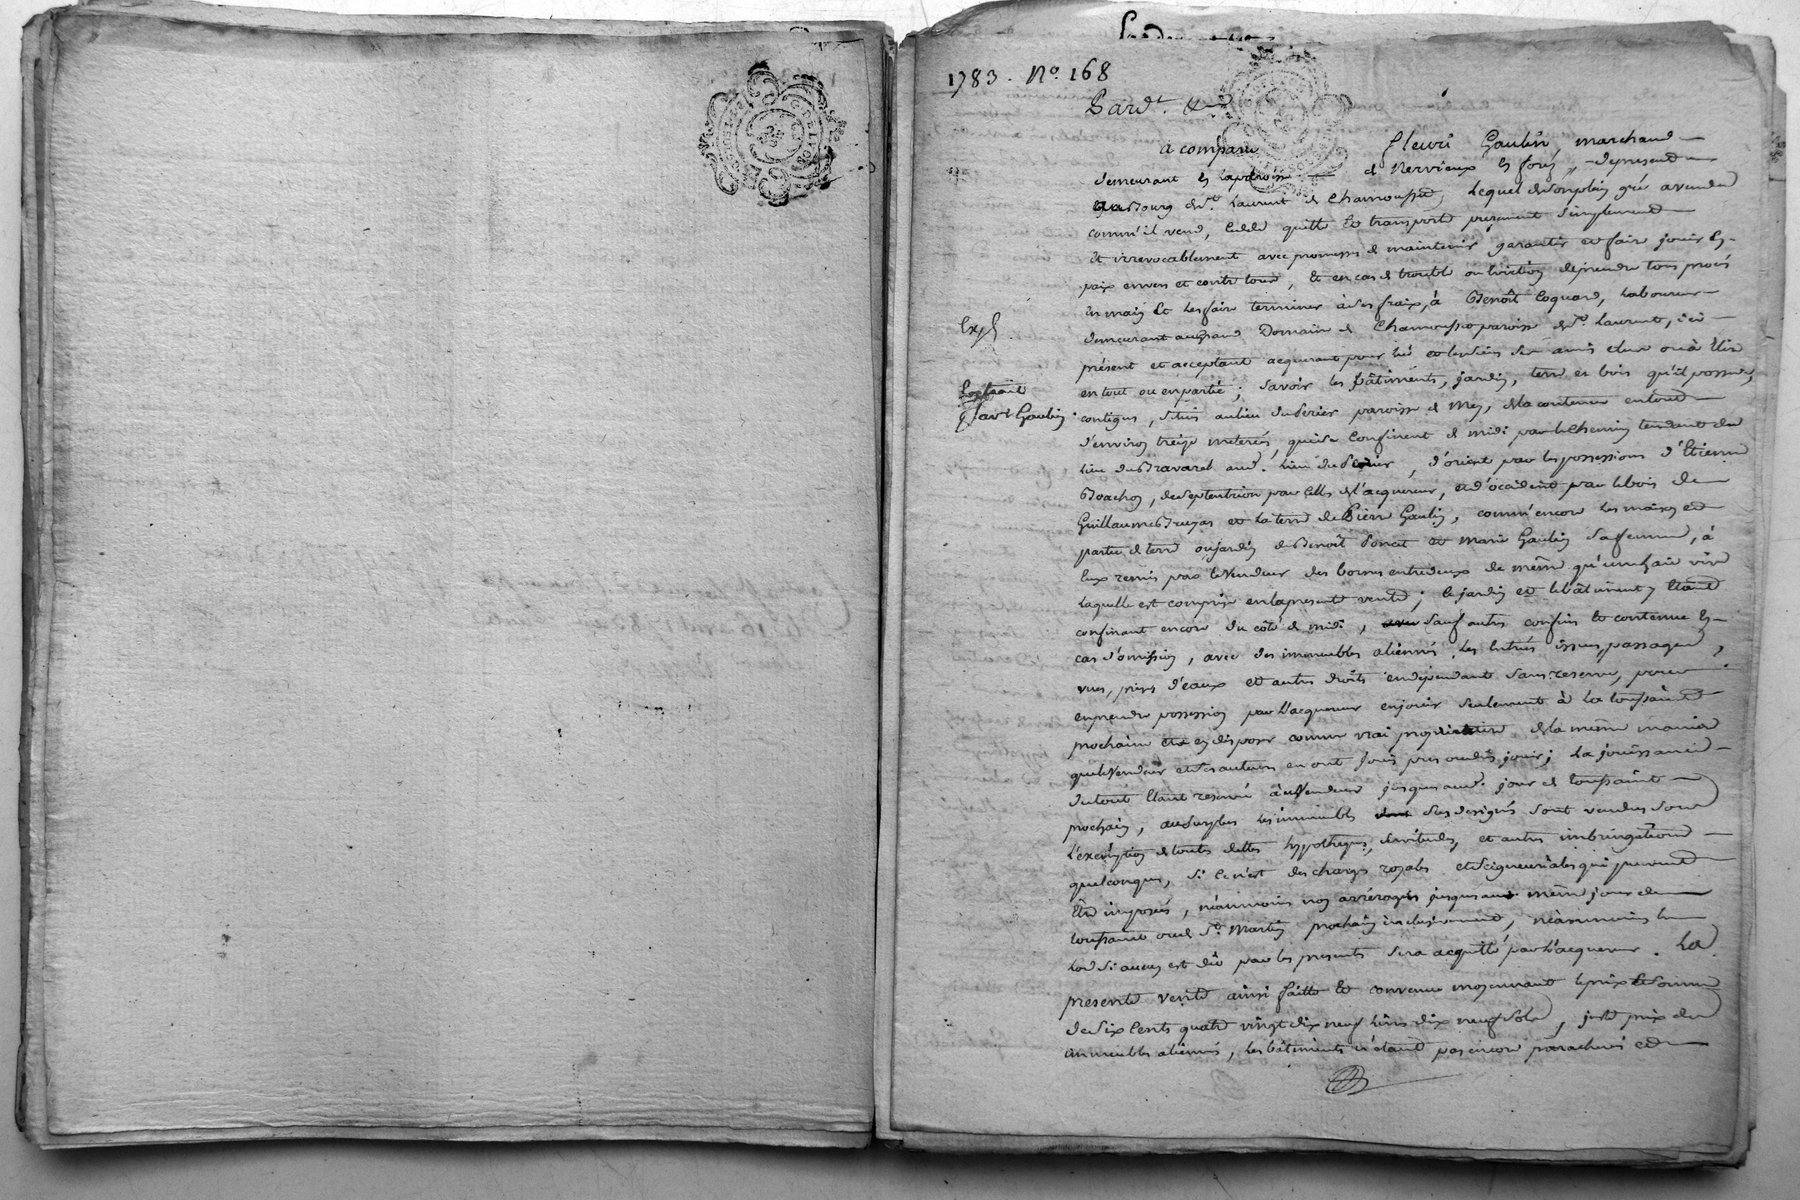 1783. No. 168
Pard.t
a comparu fleuri Gaulin, marchand
demeurant en la paroisse de Nervieux en forés, de present
au Bourg de St. Laurent de Chamousset, Lequel de son plein gré a vendu
comm'il vend, cede quitte et transporte purement simplement
et irrevocablement avec promesses de maintenir garantir et faire jouir en
paix envers et contre tous, et en cas de trouble ou eviction de prendre tous procés
en main et les faire terminer à ses fraix, à Benoît Coquard, Laboureur
demeurant au grand Domaine de Chamousset paroisse de St. Laurent, ici
présent et acceptant acquerant pour lui et les siens ses amis élus ou à élire
en tout ou en partie; savoir les bâtiments, jardin, terre et bois qu'il possede,
contigus, situés au lieu du paroisse de Mey, de la contenue en tout
d'environ treize meterés, qui se confinent de midi par le chemin tendant du
lieu du Bravard aud. lieu du , d'orient par les possessions d'Etienne
, de septentrion par celles de l'acquereur, et d'occident par le bois de
Guillaume et la terre de Pierre Gaulin, comm'encore les maison et
partie de terre ou jardin de Benoît Poncet et Marie Gaulin sa femme, à
eux remis par le Vendeur des bornes entredeux de même qu'une haie vive
laquelle est comprise en la presente vente; le jardin et le bâtiment étant
confinant encore du côté de midi, sauf autres confins et contenue en
cas d'omission, avec des immeubles aliennés les entrées issues passages,
vues, prises d'eaux et autres droits en dependant sans reserve, pour
en prendre possession par l'acquereur en jouir seulement à la toussaint
prochaine et en disposer comme vrai propriétaire de la même maniere
que le Vendeur et ses auteurs en ont joui pu ou dû jouir; la jouissance
du tout étant reservée au Vendeur jusques aud. jour de toussaint
prochain, au surplus les immeubles sus designés sont vendus sous
l'exemption de toutes dettes hypotheques, servitudes, et autres imbringations
quelconques, si ce n'est des charges royales et seigneuriales qui peuvent
être imposées, néanmoins non arréragées jusques au même jour de
toussaint ou de St. Martin prochain inclusivement, néanmoins le
lod si aucun est dû par les presentes sera acquitté par l'acquereur. La
presente vente ainsi faitte et convenue moyennant le prix et somme
de six cents quatre vingt dix neuf livres dix neuf sols, juste prix des
immeubles aliennés, les bâtiments n'étant pas encore parachevés et
Exp.
Extrait
p. lad. Gaulin